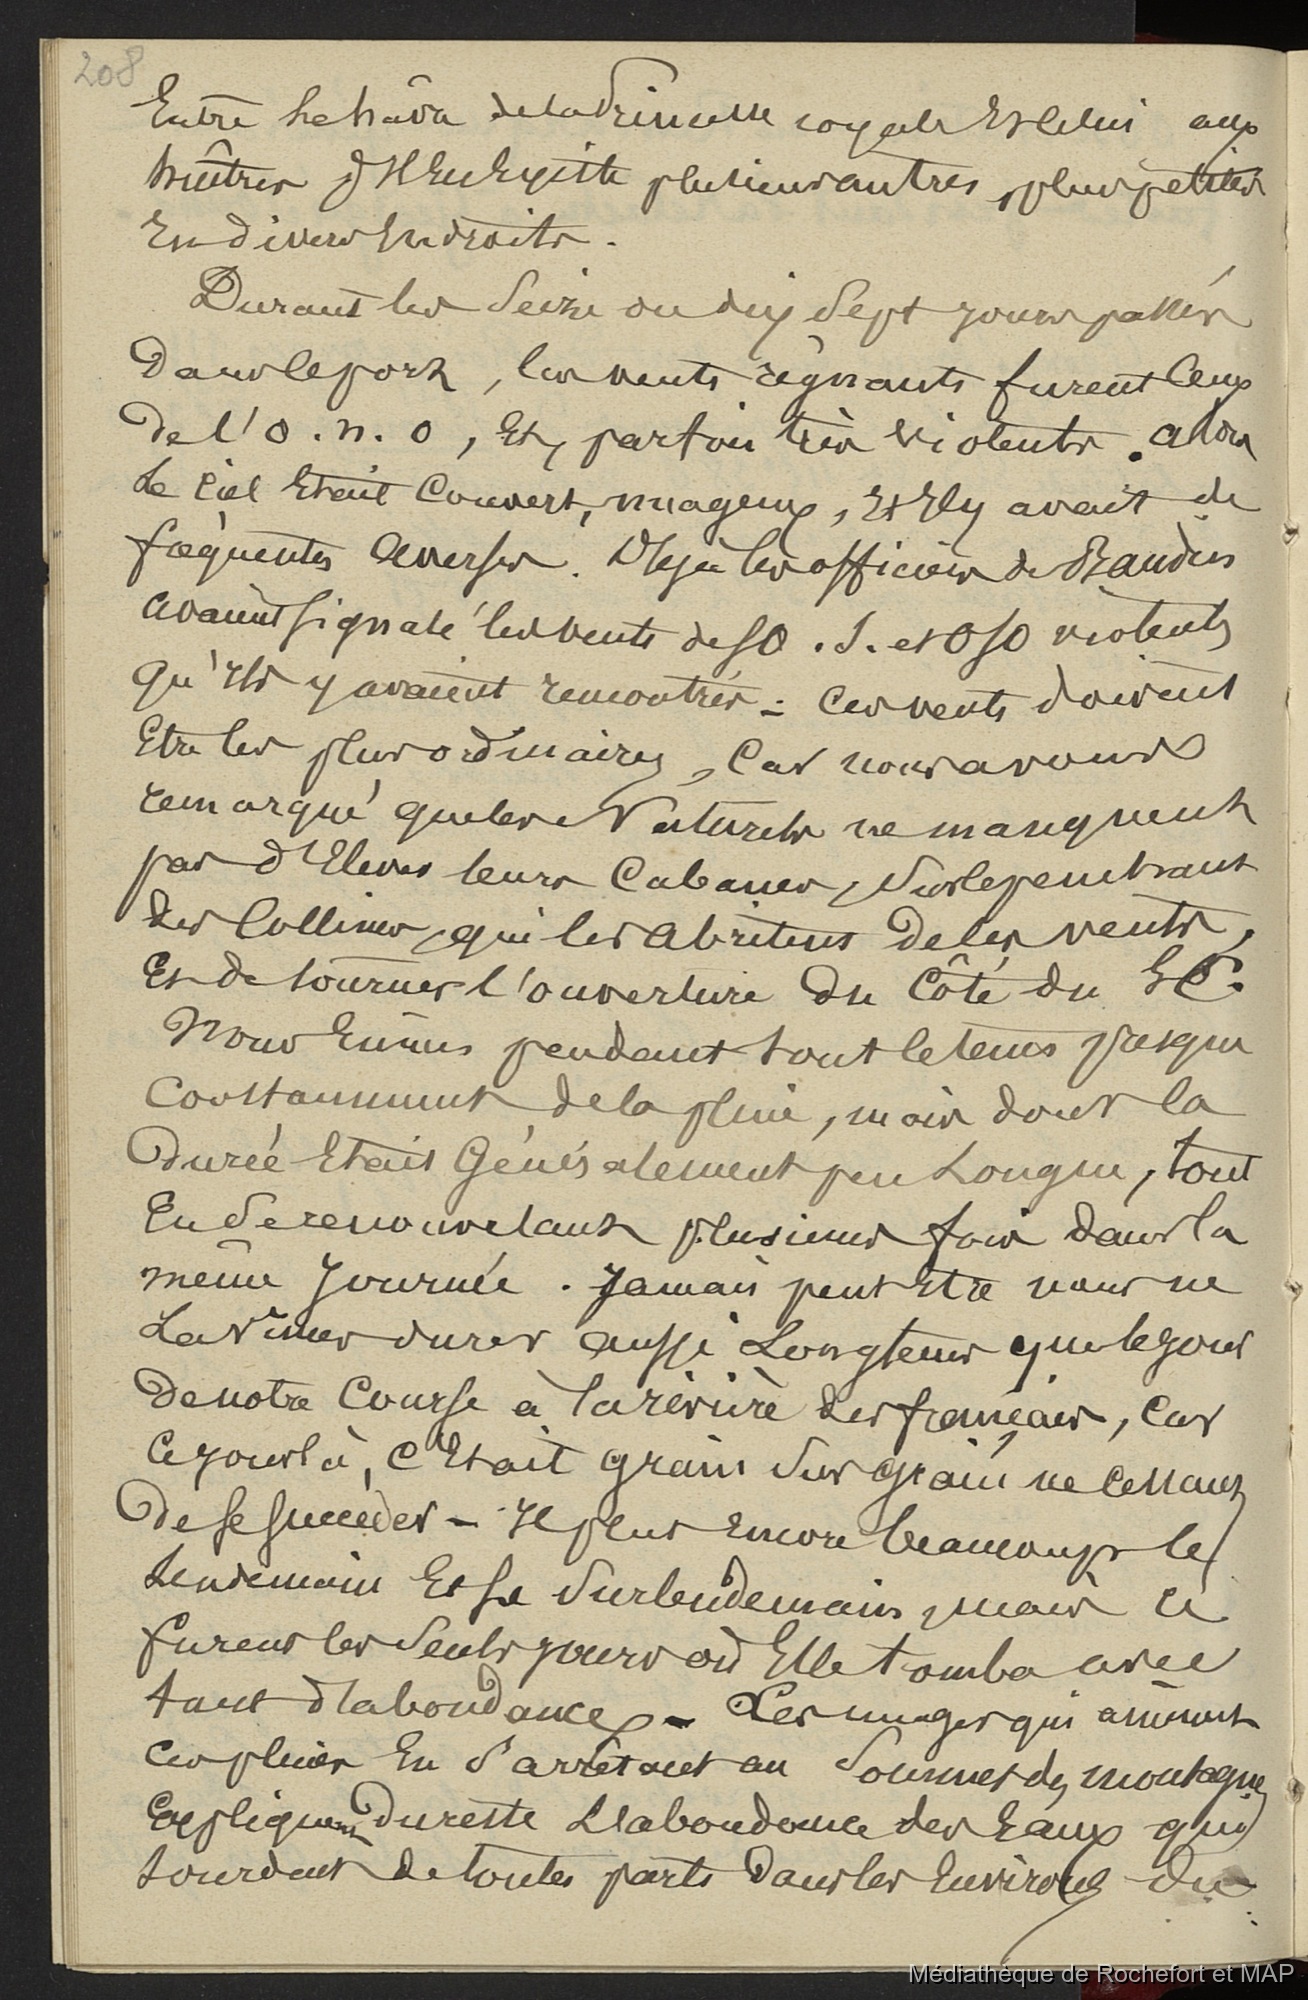 208
Entre le hâvre de la Princesse royale Et Celui aux
huîtres Il En Existe plusieurs autres, plus petites
En divers Endroits.
Durant les Seize ou dix Sept jours passés
Dans le port, les vents régnants furent Ceux
De l'O.N.O, Et, parfois très violents. alors
Le Ciel Etait Couvert, nuageux, Et Il y avait de
fréquentes averses. Déjà les officiers de Baudin
avaient signalé les vents de SO. S. et OSO violents
qu'Ils y avaient rencontrés - Ces vents doivent
Etre les plus ordinaires, Car nous avons
remarqué que les Naturels ne manquent
pas d'Elever leurs Cabanes, Sur le penchant
des Collines, qui les abritent de les vents,
Et de tourner l'ouverture du Côté du SE.
Nous Eûmes pendant tout le tems presque
Constamment de la pluie, mais dont la
Durée Etait Généralement peu Longue, tout
En Se renouvelant plusieurs fois dans la
même Journée. Jamais peut Etre nous ne
La vîmes durer aussi Longtems que le jour
De notre Course à la rivière des français, Car
Ce jour là, C'Etait grain Sur grain ne Cessant
De se succéder - Il plut Encore beaucoup le
Lendemain Et le Surlendemain, mais ce
furent les Seuls jours où Elle tomba avec
tant d'abondance - Les nuages qui amènent
Ces pluies En S'arrêtant au Sommet des montagnes
Expliquent Du reste L'abondance des Eaux qui
Sourdent de toutes parts Dans les Environs du
Médiathèque de Rochefort et MAP